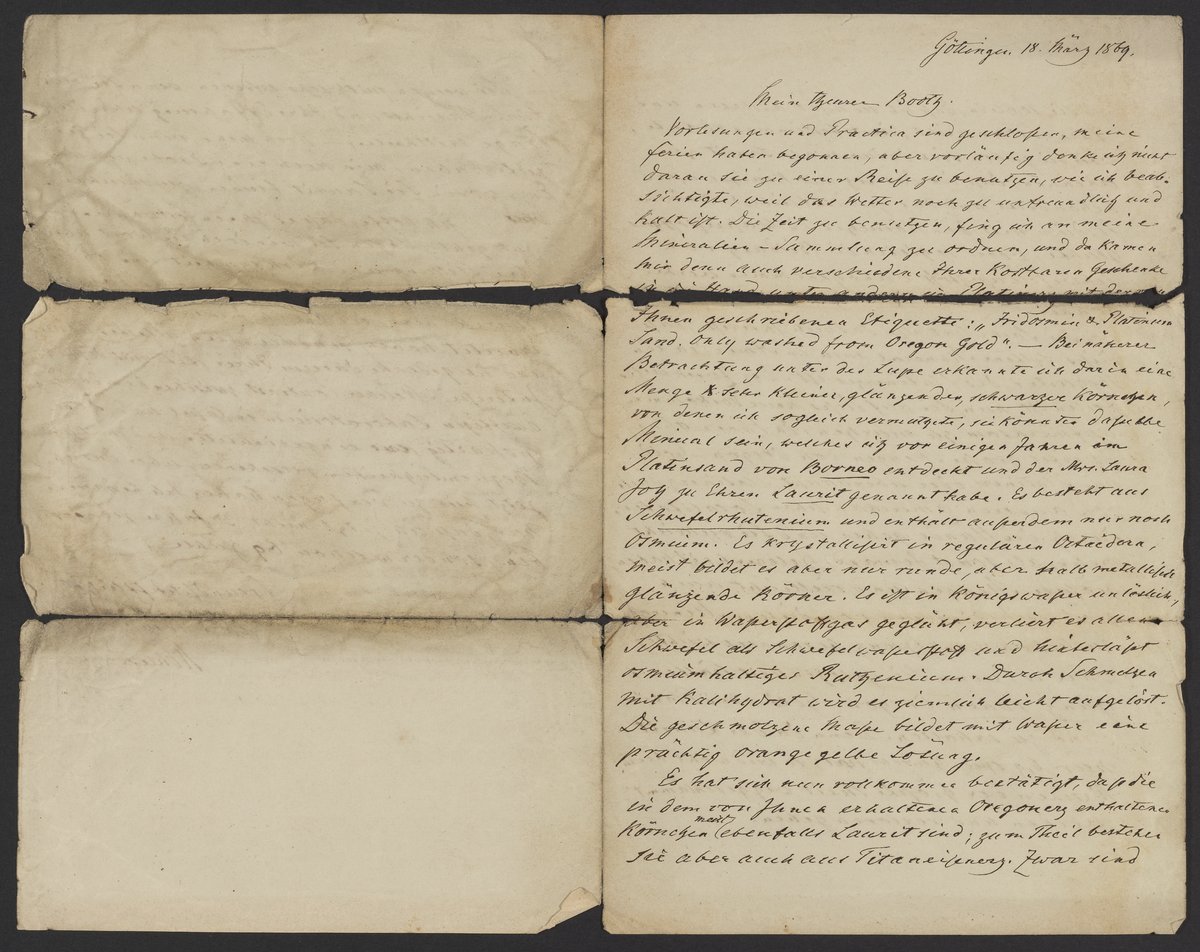 Göttingen. 18. März 1869.
Mein theurer Booth.
Vorlesungen und Practica sind geschlossen, meine
Ferien haben begonnen, aber vorläufig denke ich nicht
daran sie zu einer Reise zu benutzen, wie ich beab-
sichtigte, weil das Wetter noch zu unfreundlich und
kalt ist. Die Zeit zu benutzen, fing ich an meine
Mineralien-Sammlung zu ordnen, und da kamen
mir denn auch verschiedene Ihrer kostbaren Geschenke
in die Hand, unter anderen ein Platinerz mit der von
Ihnen geschriebenen Etiquette: „Iridosmin & Platinum
Sand. Only washed from Oregon Gold“. — Bei näherer
Betrachtung unter der Lupe erkannte ich darin eine
Menge sehr kleiner, glänzender, schwarzer Körnchen,
von denen ich sogleich vermuthete, sie könnten dasselbe
Mineral sein, welches ich vor einigen Jahren im
Platinsand von Borneo entdeckt und der Mrs. Laura
Joy zu Ehren Laurit genannt habe. Es besteht aus
Schwefelrhutenium und enthält ausserdem nur noch
Osmium. Es krystallisirt in regulären Octaëdern,
meist bildet es aber nur runde, aber halb metallisch
glänzende Körner. Es ist in Königswasser unlöslich,
aber in Wasserstoffgas geglüht, verliert es allen
Schwefel als Schwefelwasserstoff und hinterlässt
osmiumhaltiges Ruthenium. Durch Schmelzen
mit Kalihydrat wird es ziemlich leicht aufgelöst.
Die geschmolzene Masse bildet mit Wasser eine
prächtig orangegelbe Lösung.
Es hat sich nun vollkommen bestätigt, dass die
in dem von Ihnen erhaltenen Oregonerz enthaltenen
Körnchen meist ebenfalls Laurit sind; zum Theil bestehen
sie aber auch aus Titaneisenerz. Zwar sind